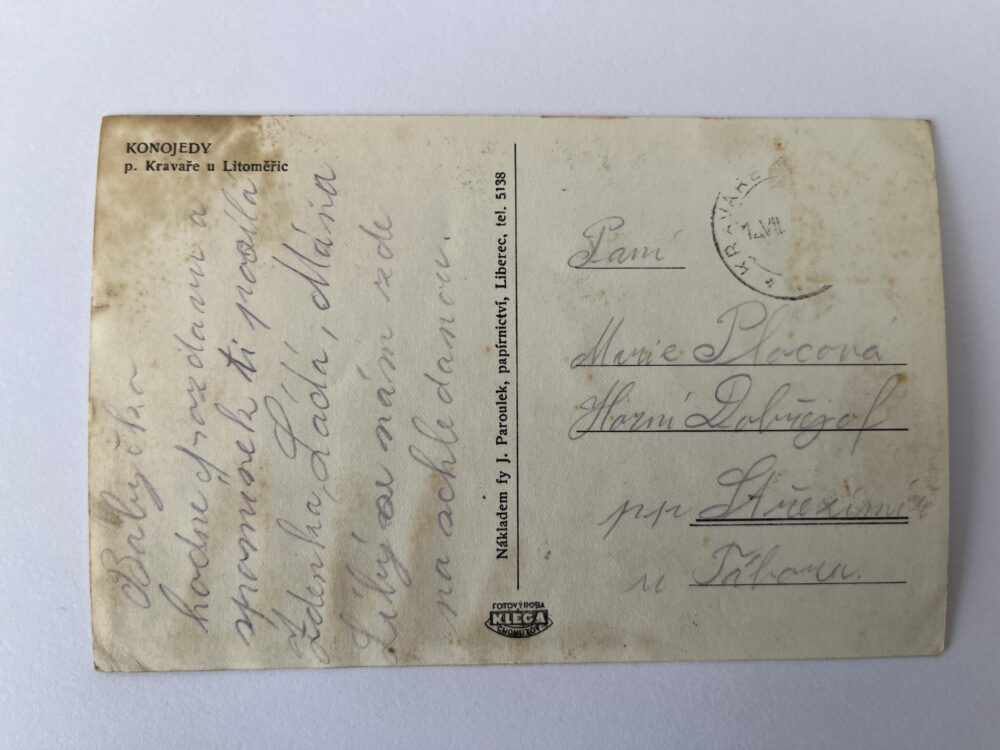 KONOJEDY
p. Kravaře u Litoměřic
Babyčko
hodně pozdravu a
spomínek ti posílá
Zdenika, Láďá, Máňa
Líbý se nám zde
na schledanou.
Nákladem fy J. Paroulek, papírnictví, Liberec, tel. 5138
FOTOVÝROBA
KLEGA
CHOMUTOV
KRAVAŘE
Paní
Marie Plocova
Horní Dobřejof
pp Střezimíř
u Tábora.